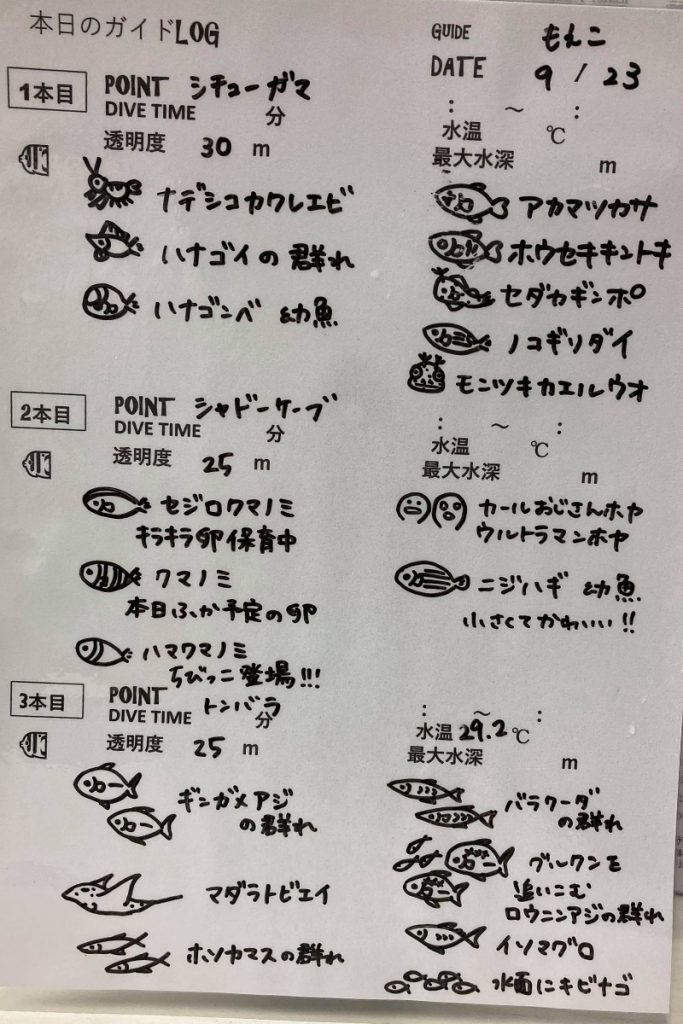 本日のガイドLOG
GUIDE もえこ
DATE 9 / 23
1本目
POINT シチューガマ
DIVE TIME 分
: ~ :
透明度 30 m
水温 ℃
最大水深 m
ナデシコカクレエビ
ハナゴイの群れ
ハナゴンベ 幼魚
アカマツカサ
ホウセキキントキ
セダカギンポ
ノコギリダイ
モンツキカエルウオ
2本目
POINT シャドーケーブ
DIVE TIME 分
: ~ :
透明度 25 m
水温 ℃
最大水深 m
セジロクマノミ
キラキラ卵保育中
クマノミ
本日ふか予定の卵
ハマクマノミ
ちびっこ登場!!!
カールおじさんホヤ
ウルトラマンホヤ
ニジハギ 幼魚
小さくてかわいい!!
3本目
POINT トンバラ
DIVE TIME 分
: ~ :
透明度 25 m
水温 29.2℃
最大水深 m
ギンガメアジ
の群れ
マダラトビエイ
ホソカマスの群れ
バラクーダ
の群れ
グルクンを
追いこむ
ロウニンアジの群れ
イソマグロ
水面にキビナゴ